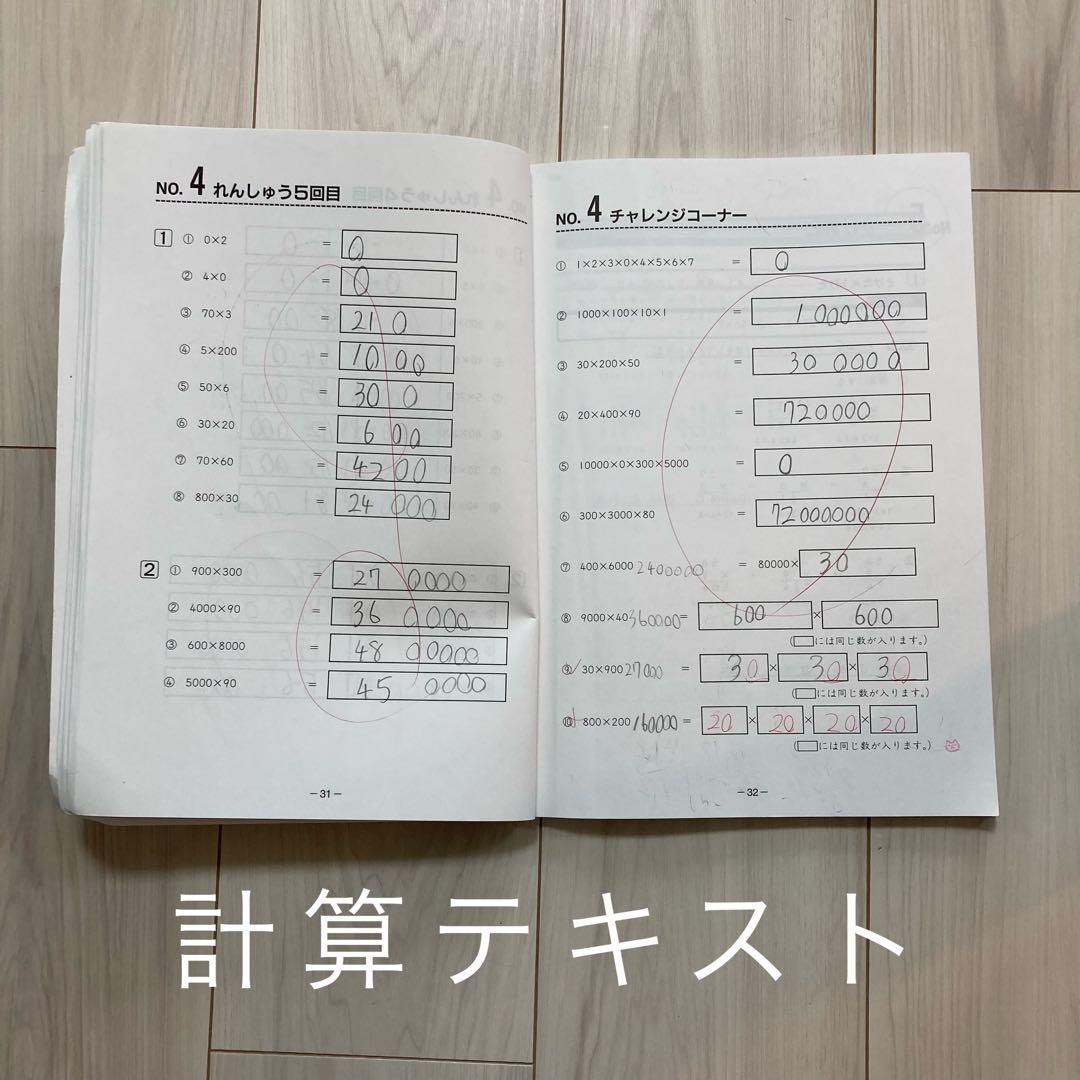 NO. 4 れんしゅう5回目
1 ① 0×2 = 0
② 4×0 = 0
③ 70×3 = 210
④ 5×200 = 1000
⑤ 50×6 = 300
⑥ 30×20 = 600
⑦ 70×60 = 4200
⑧ 800×30 = 24000
2 ① 900×300 = 270000
② 4000×90 = 360000
③ 600×8000 = 4800000
④ 5000×90 = 450000
−31−
NO. 4 チャレンジコーナー
① 1×2×3×0×4×5×6×7 = 0
② 1000×100×10×1 = 1000000
③ 30×200×50 = 300000
④ 20×400×90 = 720000
⑤ 10000×0×300×5000 = 0
⑥ 300×3000×80 = 72000000
⑦ 400×6000 2400000 = 80000× 30
⑧ 9000×40 360000 = 600 × 600
(□には同じ数が入ります。)
⑨ 30×900 27000 = 30 × 30 × 30
(□には同じ数が入ります。)
⑩ 800×200 160000 = 20 × 20 × 20 × 20
(□には同じ数が入ります。)
−32−
計算テキスト